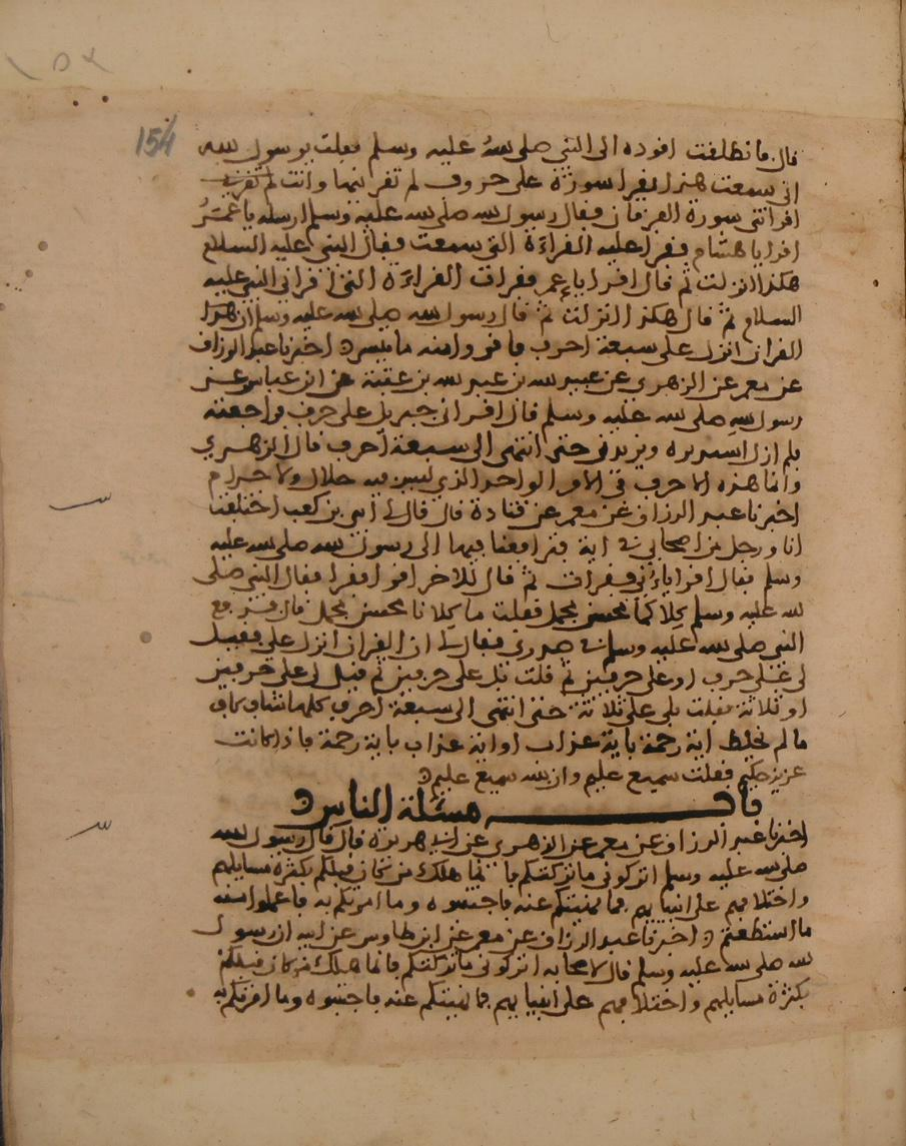 ١٥٢
154
قال فانطلقت اقوده الى النبي صلى الله عليه وسلم فقلت يرسول الله
انى سمعت هذا يقرا سورة على حروف لم تقرئنيها وانت
اقراتنى سورة الفرقان فقال رسول الله صلى الله عليه وسلم ارسله يا عمر
اقرا يا هشام فقرا عليه القراءة التى سمعت فقال النبي عليه السلام
هكذا انزلت ثم قال اقرا يا عمر فقرات القراءة التى اقرانى النبي عليه
السلام ثم قال هكذا انزلت ثم قال رسول الله صلى الله عليه وسلم ان هذا
القران انزل على سبعة احرف فاقروا منه ما تيسر اخبرنا عبد الرزاق
عن معمر عن الزهري عن عبيد الله بن عبد الله بن عتبة عن ابن عباس عن
رسول الله صلى الله عليه وسلم قال اقرانى جبريل على حرف فراجعته
فلم ازل استزيده ويزيدنى حتى انتهى الى سبعة احرف قال الزهري
وانما هذه الاحرف في الامر الواحد الذي ليس فيه حلال ولا حرام
اخبرنا عبد الرزاق عن معمر عن قتادة قال قال لى ابى بن كعب اختلفت
انا ورجل من اصحابى في اية فترافعنا فيها الى رسول الله صلى الله عليه
وسلم فقال اقرا يا ابى فقرات ثم قال للاخر اقرا فقرا فقال النبي صلى
الله عليه وسلم كلاكما محسن مجمل فقلت ما كلانا محسن مجمل قال فدفع
النبي صلى الله عليه وسلم في صدري فقال لى ان القران انزل على فقيل
لى على حرف او على حرفين ثم قلت بل على حرفين ثم قيل لى على حرفين
او ثلاثة فقلت بل على ثلاثة حتى انتهى الى سبعة احرف كلها شاف كاف
ما لم تخلط اية رحمة باية عذاب او اية عذاب باية رحمة فاذا كانت
عزيز حكيم فقلت سميع عليم وان الله سميع عليم
باب مسئلة الناس
اخبرنا عبد الرزاق عن معمر عن الزهري عن ابى هريرة قال قال رسول الله
صلى الله عليه وسلم اتركونى ما تركتكم فانما هلك من كان قبلكم بكثرة مسايلهم
واختلافهم على انبيايهم فما نهيتكم عنه فاجتنبوه وما امرتكم به فاعملوا منه
ما استطعتم اخبرنا عبد الرزاق عن معمر عن ابن طاوس عن ابيه ان رسول
الله صلى الله عليه وسلم قال لاصحابه اتركونى ما تركتكم فانما هلك من كان قبلكم
بكثرة مسايلهم واختلافهم على انبيايهم فما نهيتكم عنه فاجتنبوه وما امرتكم به